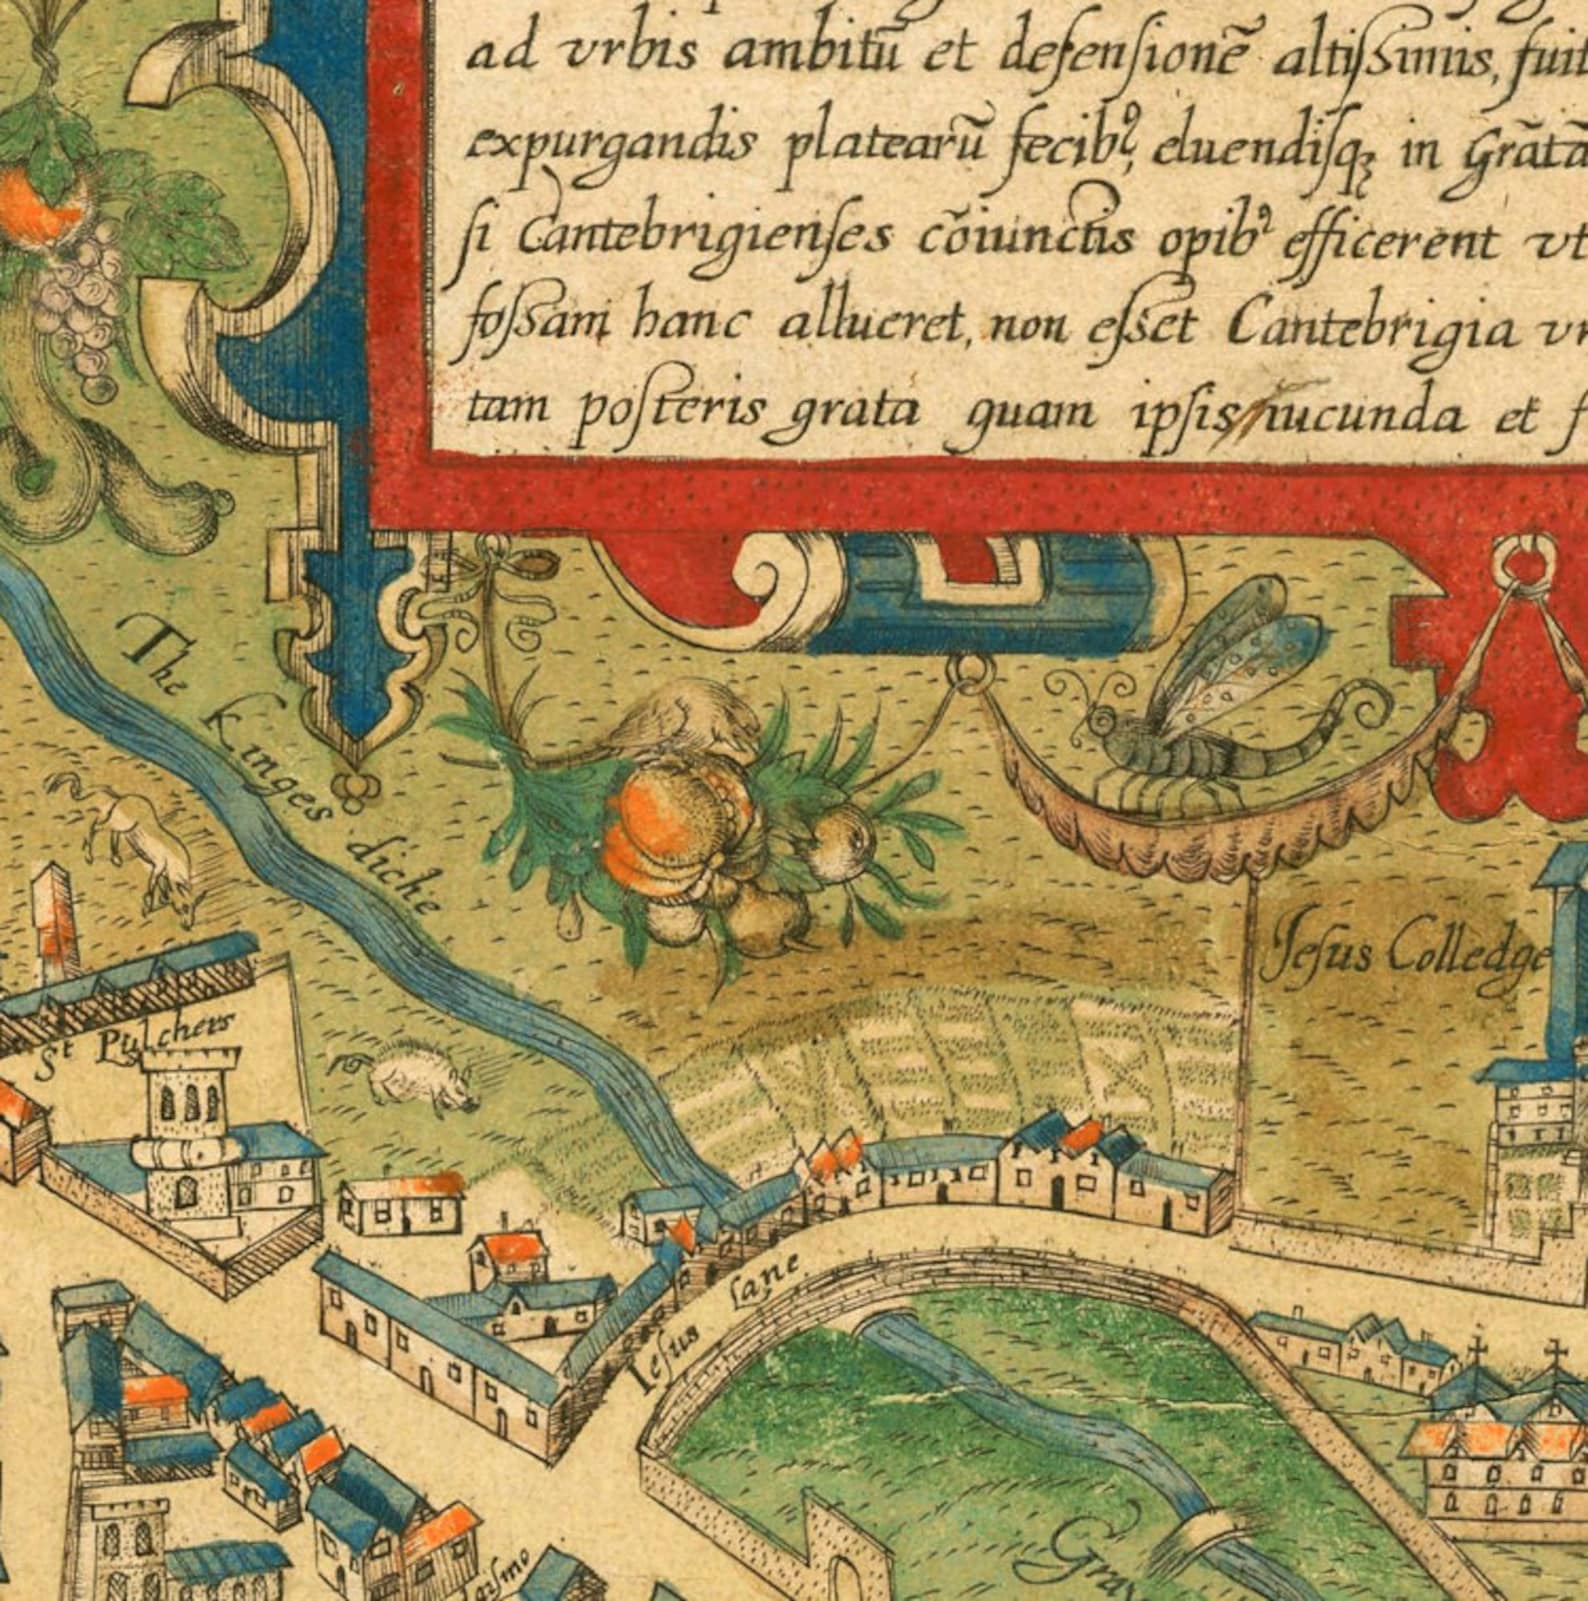 ad vrbis ambitū et defenſionē altiſsimis, fuit
expurgandis platearū fecibꝰ, eluendiſqꝫ in Grāta
ſi Cantebrigienſes cōiunctis opibꝰ efficerent vt
foſsam hanc allueret, non eſset Cantebrigia
tam poſteris grata quam ipſis iucunda et
The Kinges diche
Jeſus Colledge
St Pulchers
Ieſus Lane